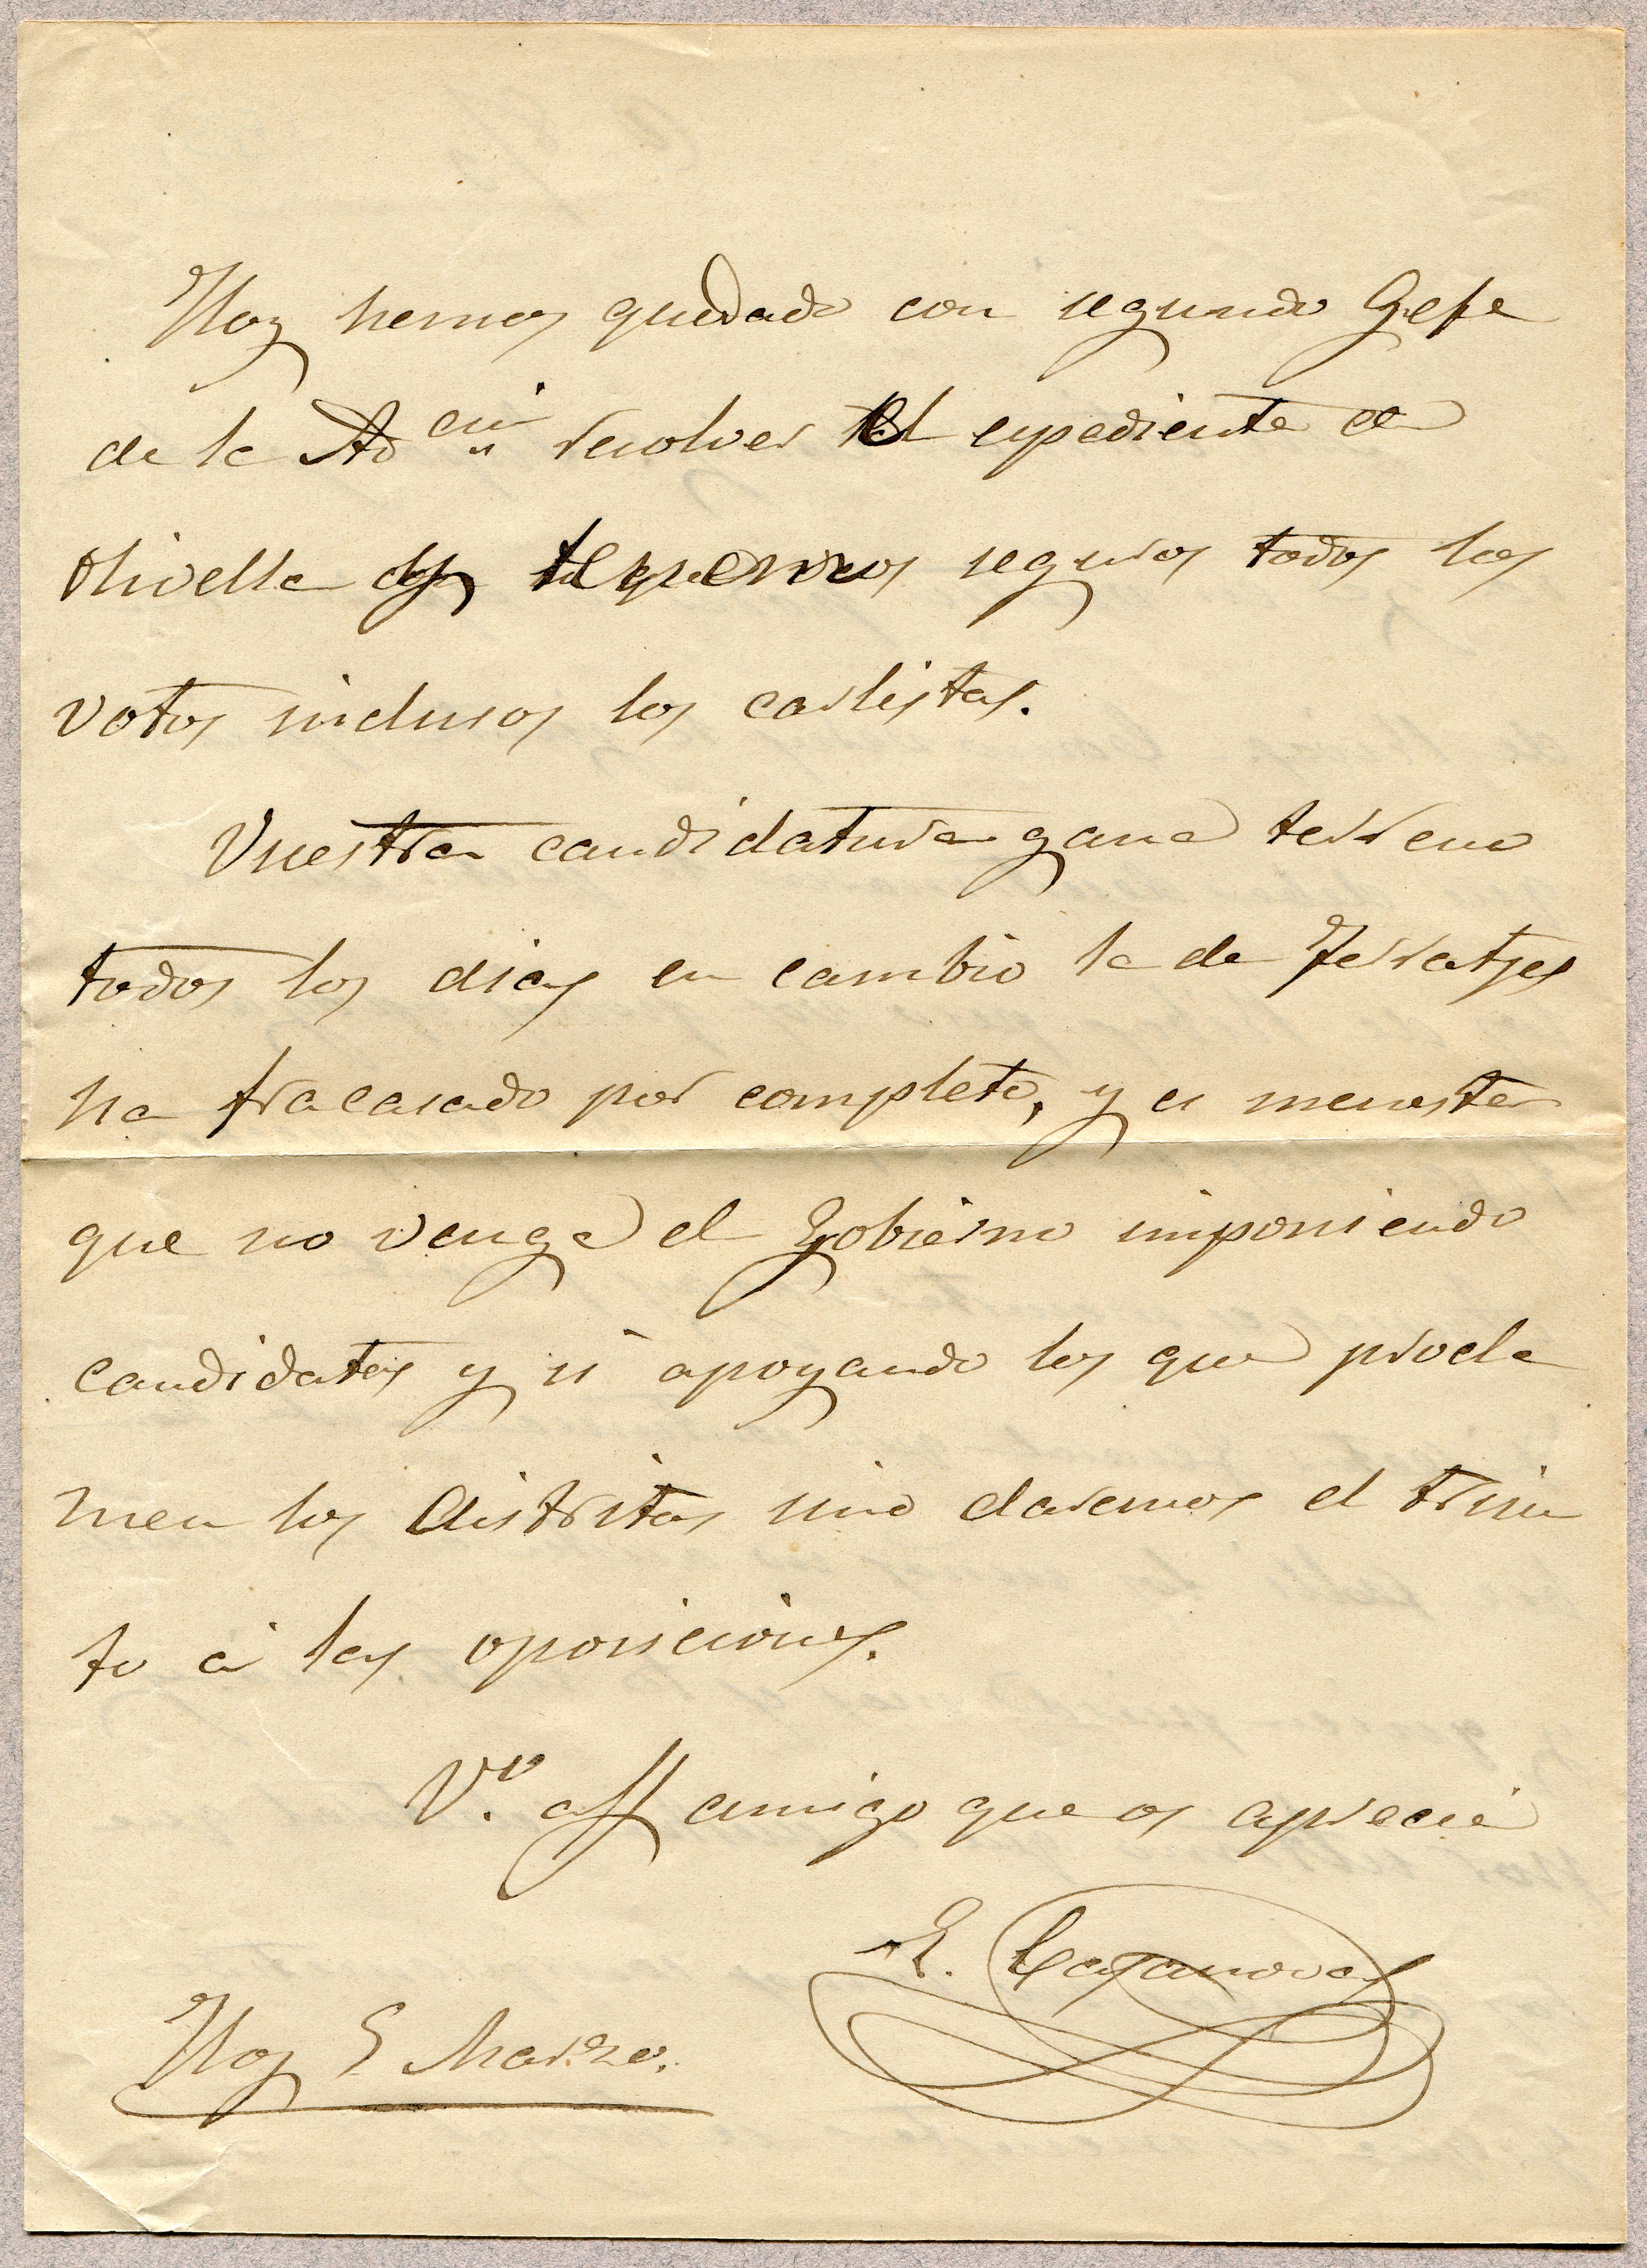 Hoy hemos quedado con segundo Gefe
de la Ad cin resolver el expediente de
Olivella y tenemos seguros todos los
votos inclusos los carlistas.
Vuestra candidatura gana terreno
todos los dias en cambio la de Ferratjes
ha fracasado por completo, y es menester
que no venga el Gobierno imponiendo
candidatos y si apoyando los que procla
men los distritos sino daremos el triun
fo á las oposiciones.
V.º aff amigo que os aprecia
E. Casanovas
Hoy 5 Marzo.